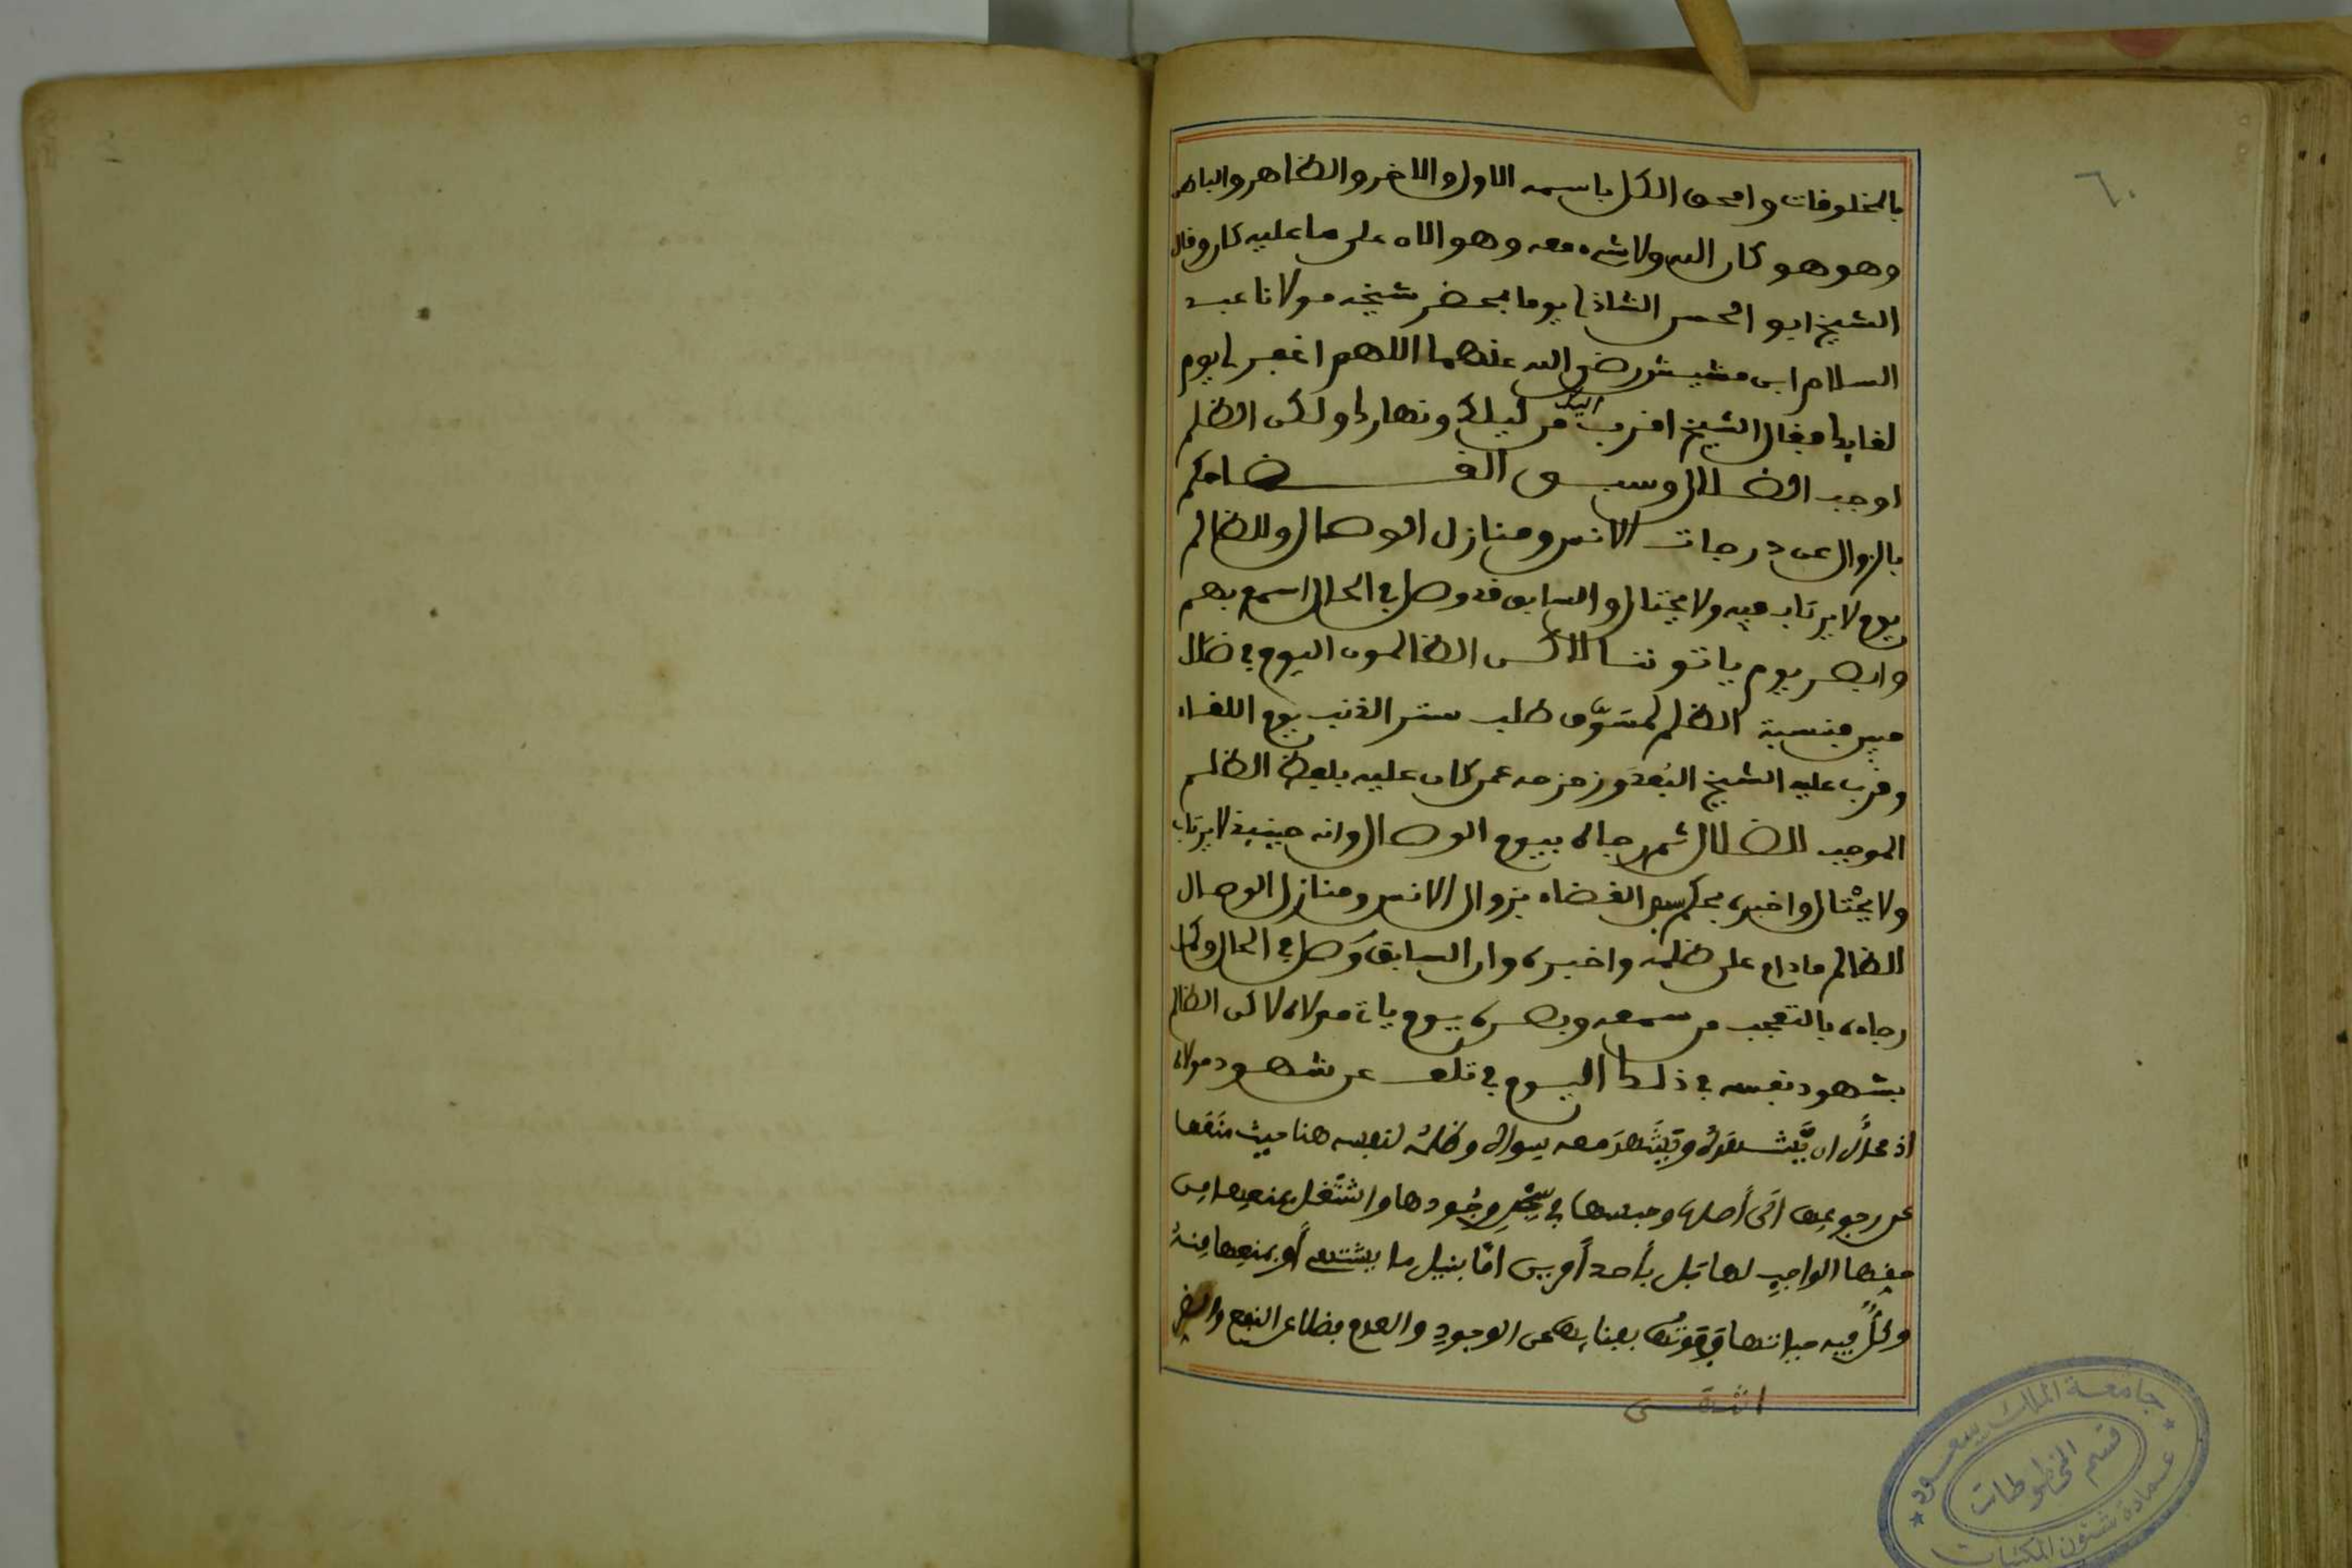 ٦٠
بالمخلوقات وامحق الكل باسمه الاول والاخر والظاهر والباطن
وهو هو كان الله ولا شيء معه وهو الان على ما عليه كان وقال
الشيخ ابو الحسن الشاذلي يوما بمحضر شيخه مولانا عبد
السلام ابن مشيش رضي الله عنهما اللهم اغفر لي يوم
لقايك فقال الشيخ اقرب اليك من ليلك ونهارك ولكن الظلم
اوجب الضلال وسبق القضا حكم
بالزوال عن درجات الانس ومنازل الوصال وللظالم
يوم لا يرتاب فيه ولا يختال والسابق قد وصل في الحال اسمع بهم
وابصر يوم ياتوننا لاكن الظالمون اليوم في ضلال
مبين فنسبة الظلم لمسوف طلب ستر الذنب يوم اللقاء
وقرب عليه الشيخ البعد وزحزحه عمن كان عليه بلفظ الظلم
الموجب للضلال ثم رجاه بيوم الوصال وانه حينيذ لا يرتاب
ولا يختال واخبره بحكم سبق القضاء بزوال الانس ومنازل الوصال
الظالم مادام على ظلمه واخبره وان السابق وصل في الحال وكمل
رجاءه بالتعجب من سمعه وبصره يوم ياتي مولاه لاكن الظالم
بشهود نفسه في ذلك اليوم في تلف عن شهود مولاه
اذ محال ان يشهده ويشهد معه سواه وظلمه لنفسه هنا حيث منعها
عن رجوعها الى أصلها وحبسها في سجن وجودها واشتغل بمنعها من
حقها الواجب لها قبل بأحد أمرين امّا بنيل ما يشتهي أو بمنعها منه
وكلٌّ فيه حياتها وقوتها بغنايها عن الوجود والعدم فضلا عن النفع والضر
انتهى
جامعة الملك سعود
قسم المخطوطات
عمادة شئون المكتبات